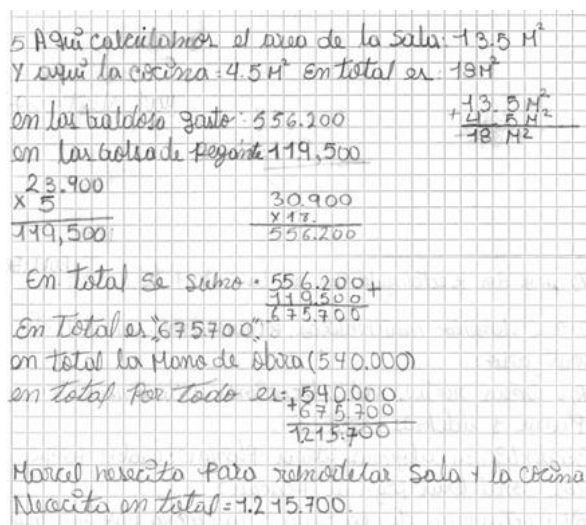 5 Aqui calculamos el area de la sala: 13.5 M²
Y aqui la cocina: 4.5 M² en total es: 18M²
+13.5 M²
4.5 M²
18 M²
en las baldosa gasto: 556.200
en las bolsa de pegante 119,500
23.900
x 5
119,500
30.900
x 18.
556.200
En total se sumo. 556.200 +
119.500
675.700
En Total es "675700"
en total la Mano de obra (540.000)
en total Por Todo es: 540.000
+675.700
1215.700
Marcel nesecita Para remodelar Sala y la cocina
Nececita en total = 1.215.700.